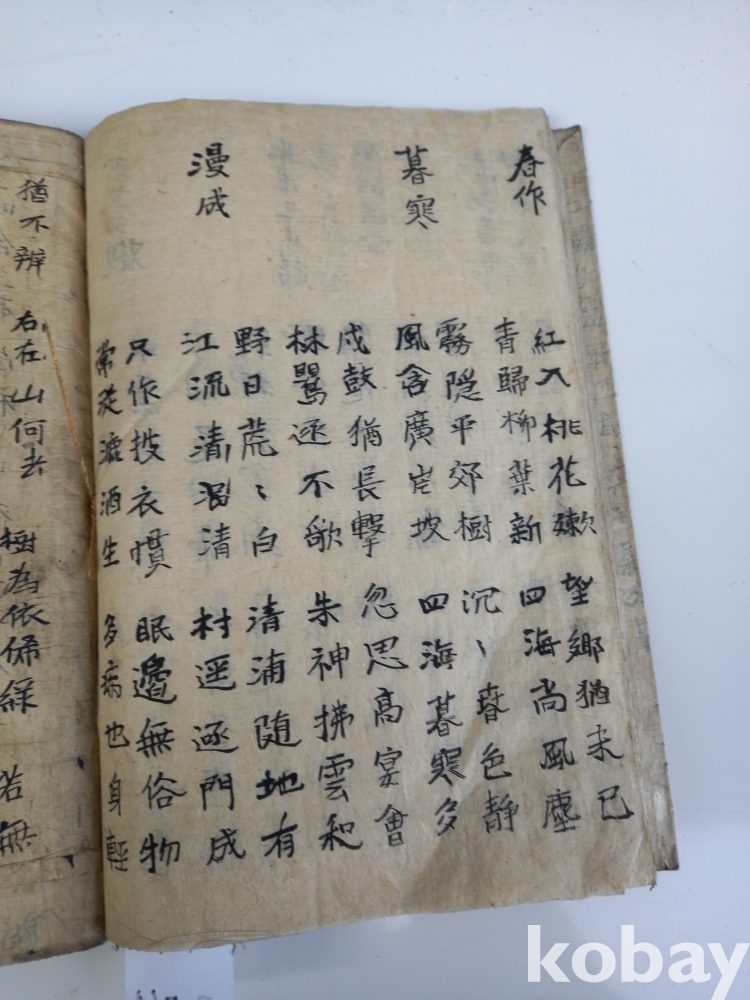 春作
紅入桃花嫰 望鄉猶未已
青歸柳葉新 四海尚風塵
霧隱平郊樹 沉〻春色靜
暮寒
風含廣岸坡 四海暮寒多
戍鼓猶長擊 忽思高宴會
林鶯逐不歌 朱神拂雲和
野日荒〻白 清浦随地有
漫成
江流清泯清 村逕逐門成
只作披衣慣 眠邊無俗物
常從漉酒生 多病也身輕
猶不辨 右在山何去 樹為依俙綠 若無
kobay